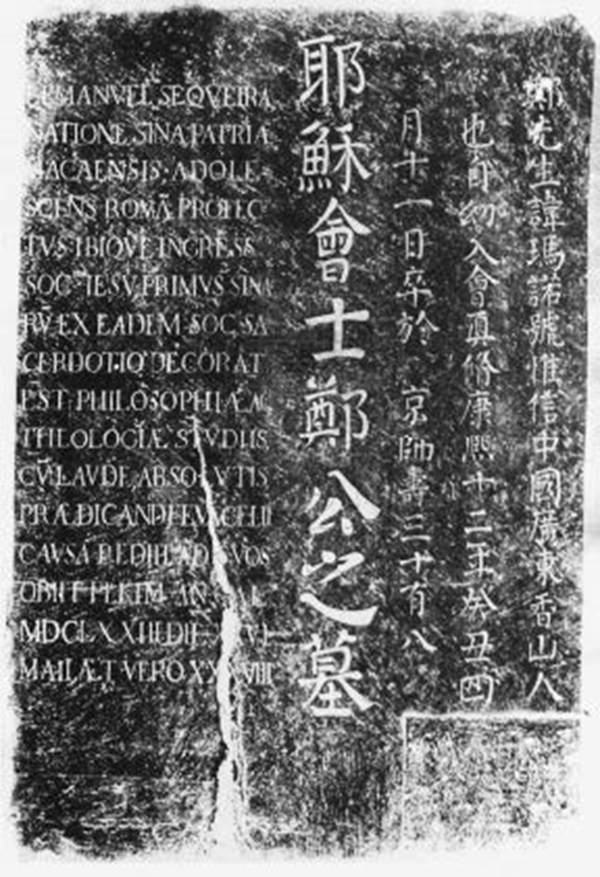 鄭先生諱瑪諾號惟信中國廣東香山人
也自幼入會真修康熙十二年癸丑四
月十一日卒於 京師壽三十有八
耶穌會士鄭公之墓
EMANVEL SEQVEIRA
NATIONE SINA PATRIA
MACAENSIS·ADOLE
SCENS ROMÃ PROFEC
TVS IBIQVE INGRESS
SOC·IESV PRIMVS SINA
RṼ EX EADEM SOC SA
CERDOTIO DECORAT
EST PHILOSOPHIÆ AC
THEOLOGIÆ STVDIIS
CṼ LAVDE ABSOLVTIS
PRÆDICANDI EVANGELII
CAVSA REDIIT AD SVOS
OBIIT PEKIM AN
MDCLXXIII DIE
MAII ÆT VERO XXXVIII